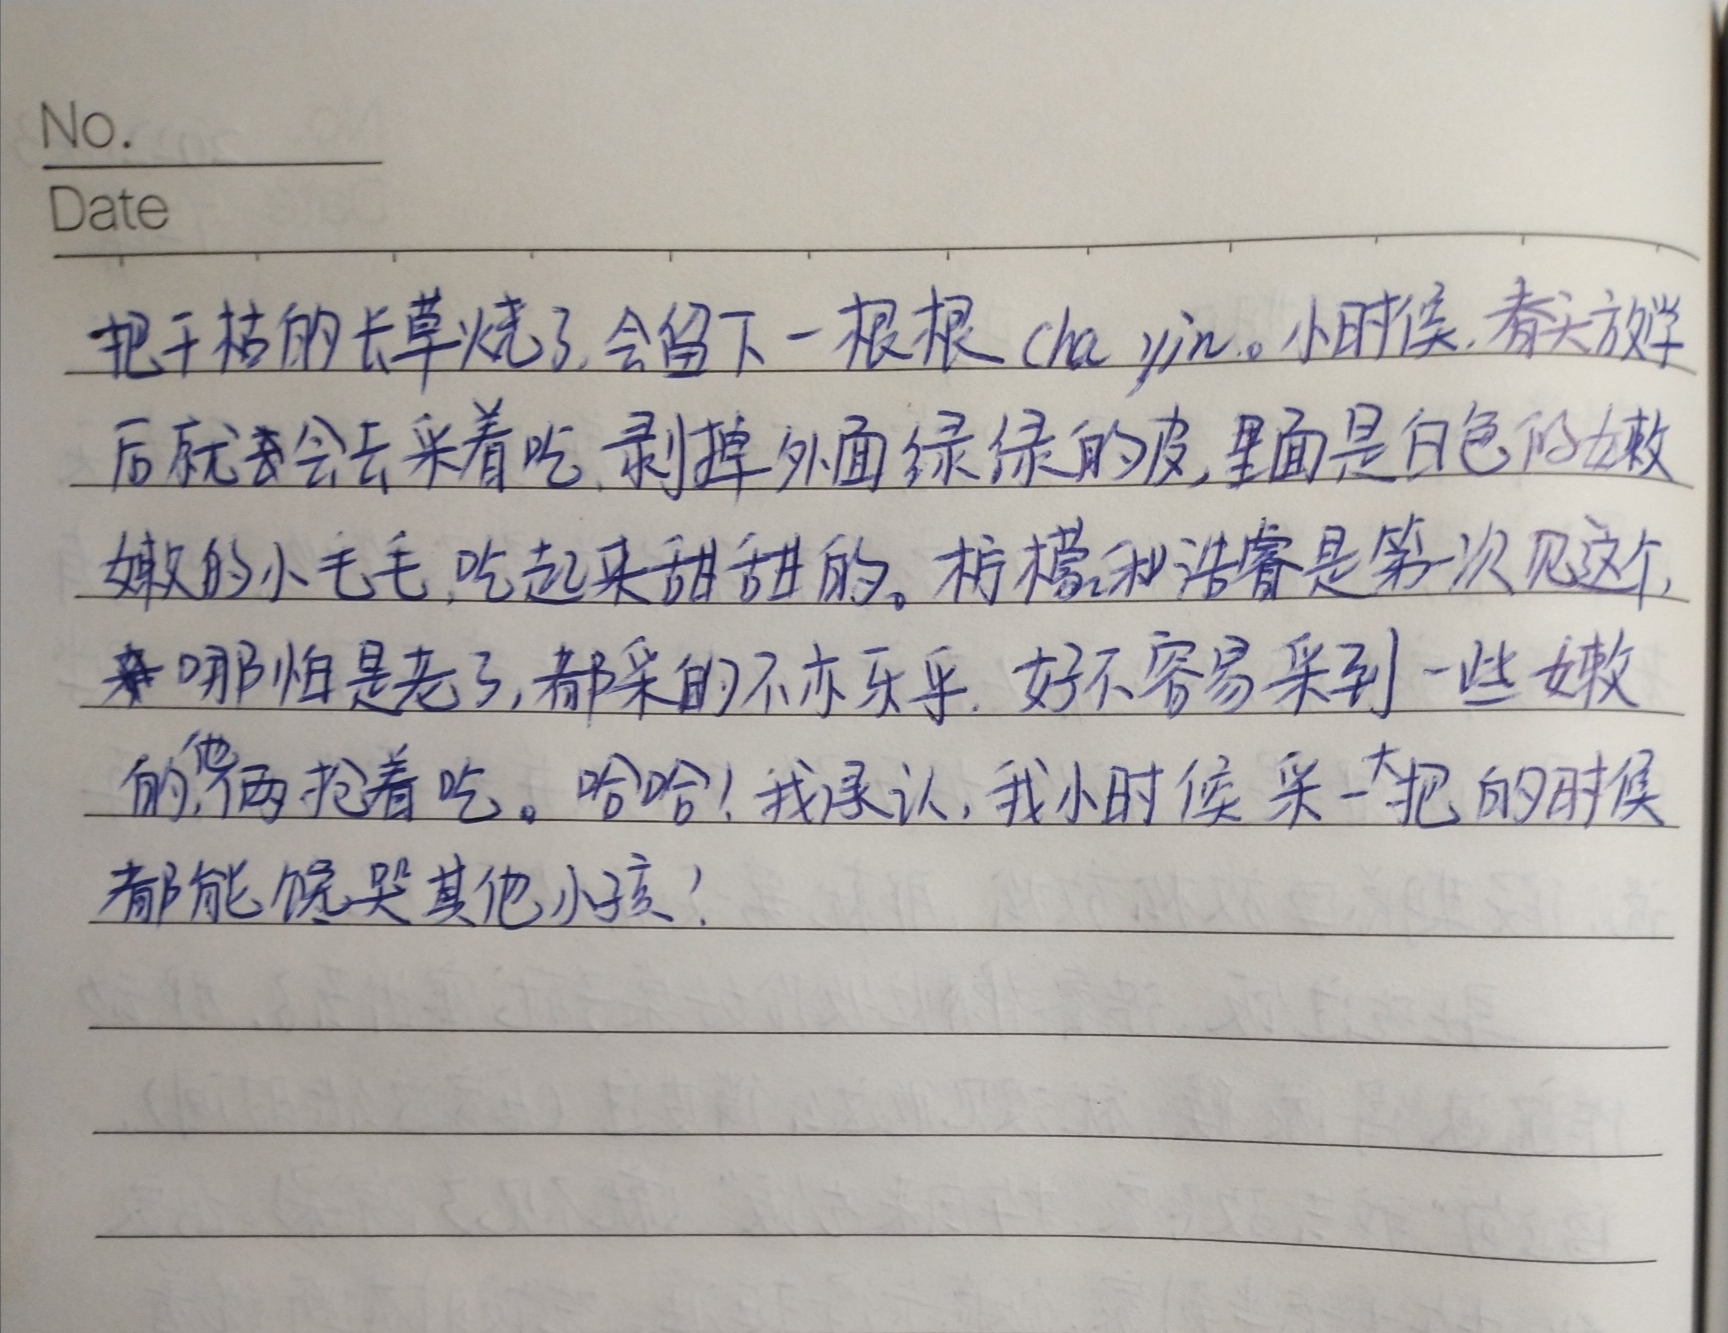 No.
Date
把干枯的长草烧了,会留下一根根 cha yin。小时候,春天放学
后就会去采着吃,剥掉外面绿绿的皮,里面是白色的嫩
嫩的小毛毛,吃起来甜甜的。柠檬和浩睿是第一次见这个,
哪怕是老了,都采的不亦乐乎,好不容易采到一些嫩
的,他俩抢着吃。哈哈!我承认,我小时候采一大把的时候
都能馋哭其他小孩!